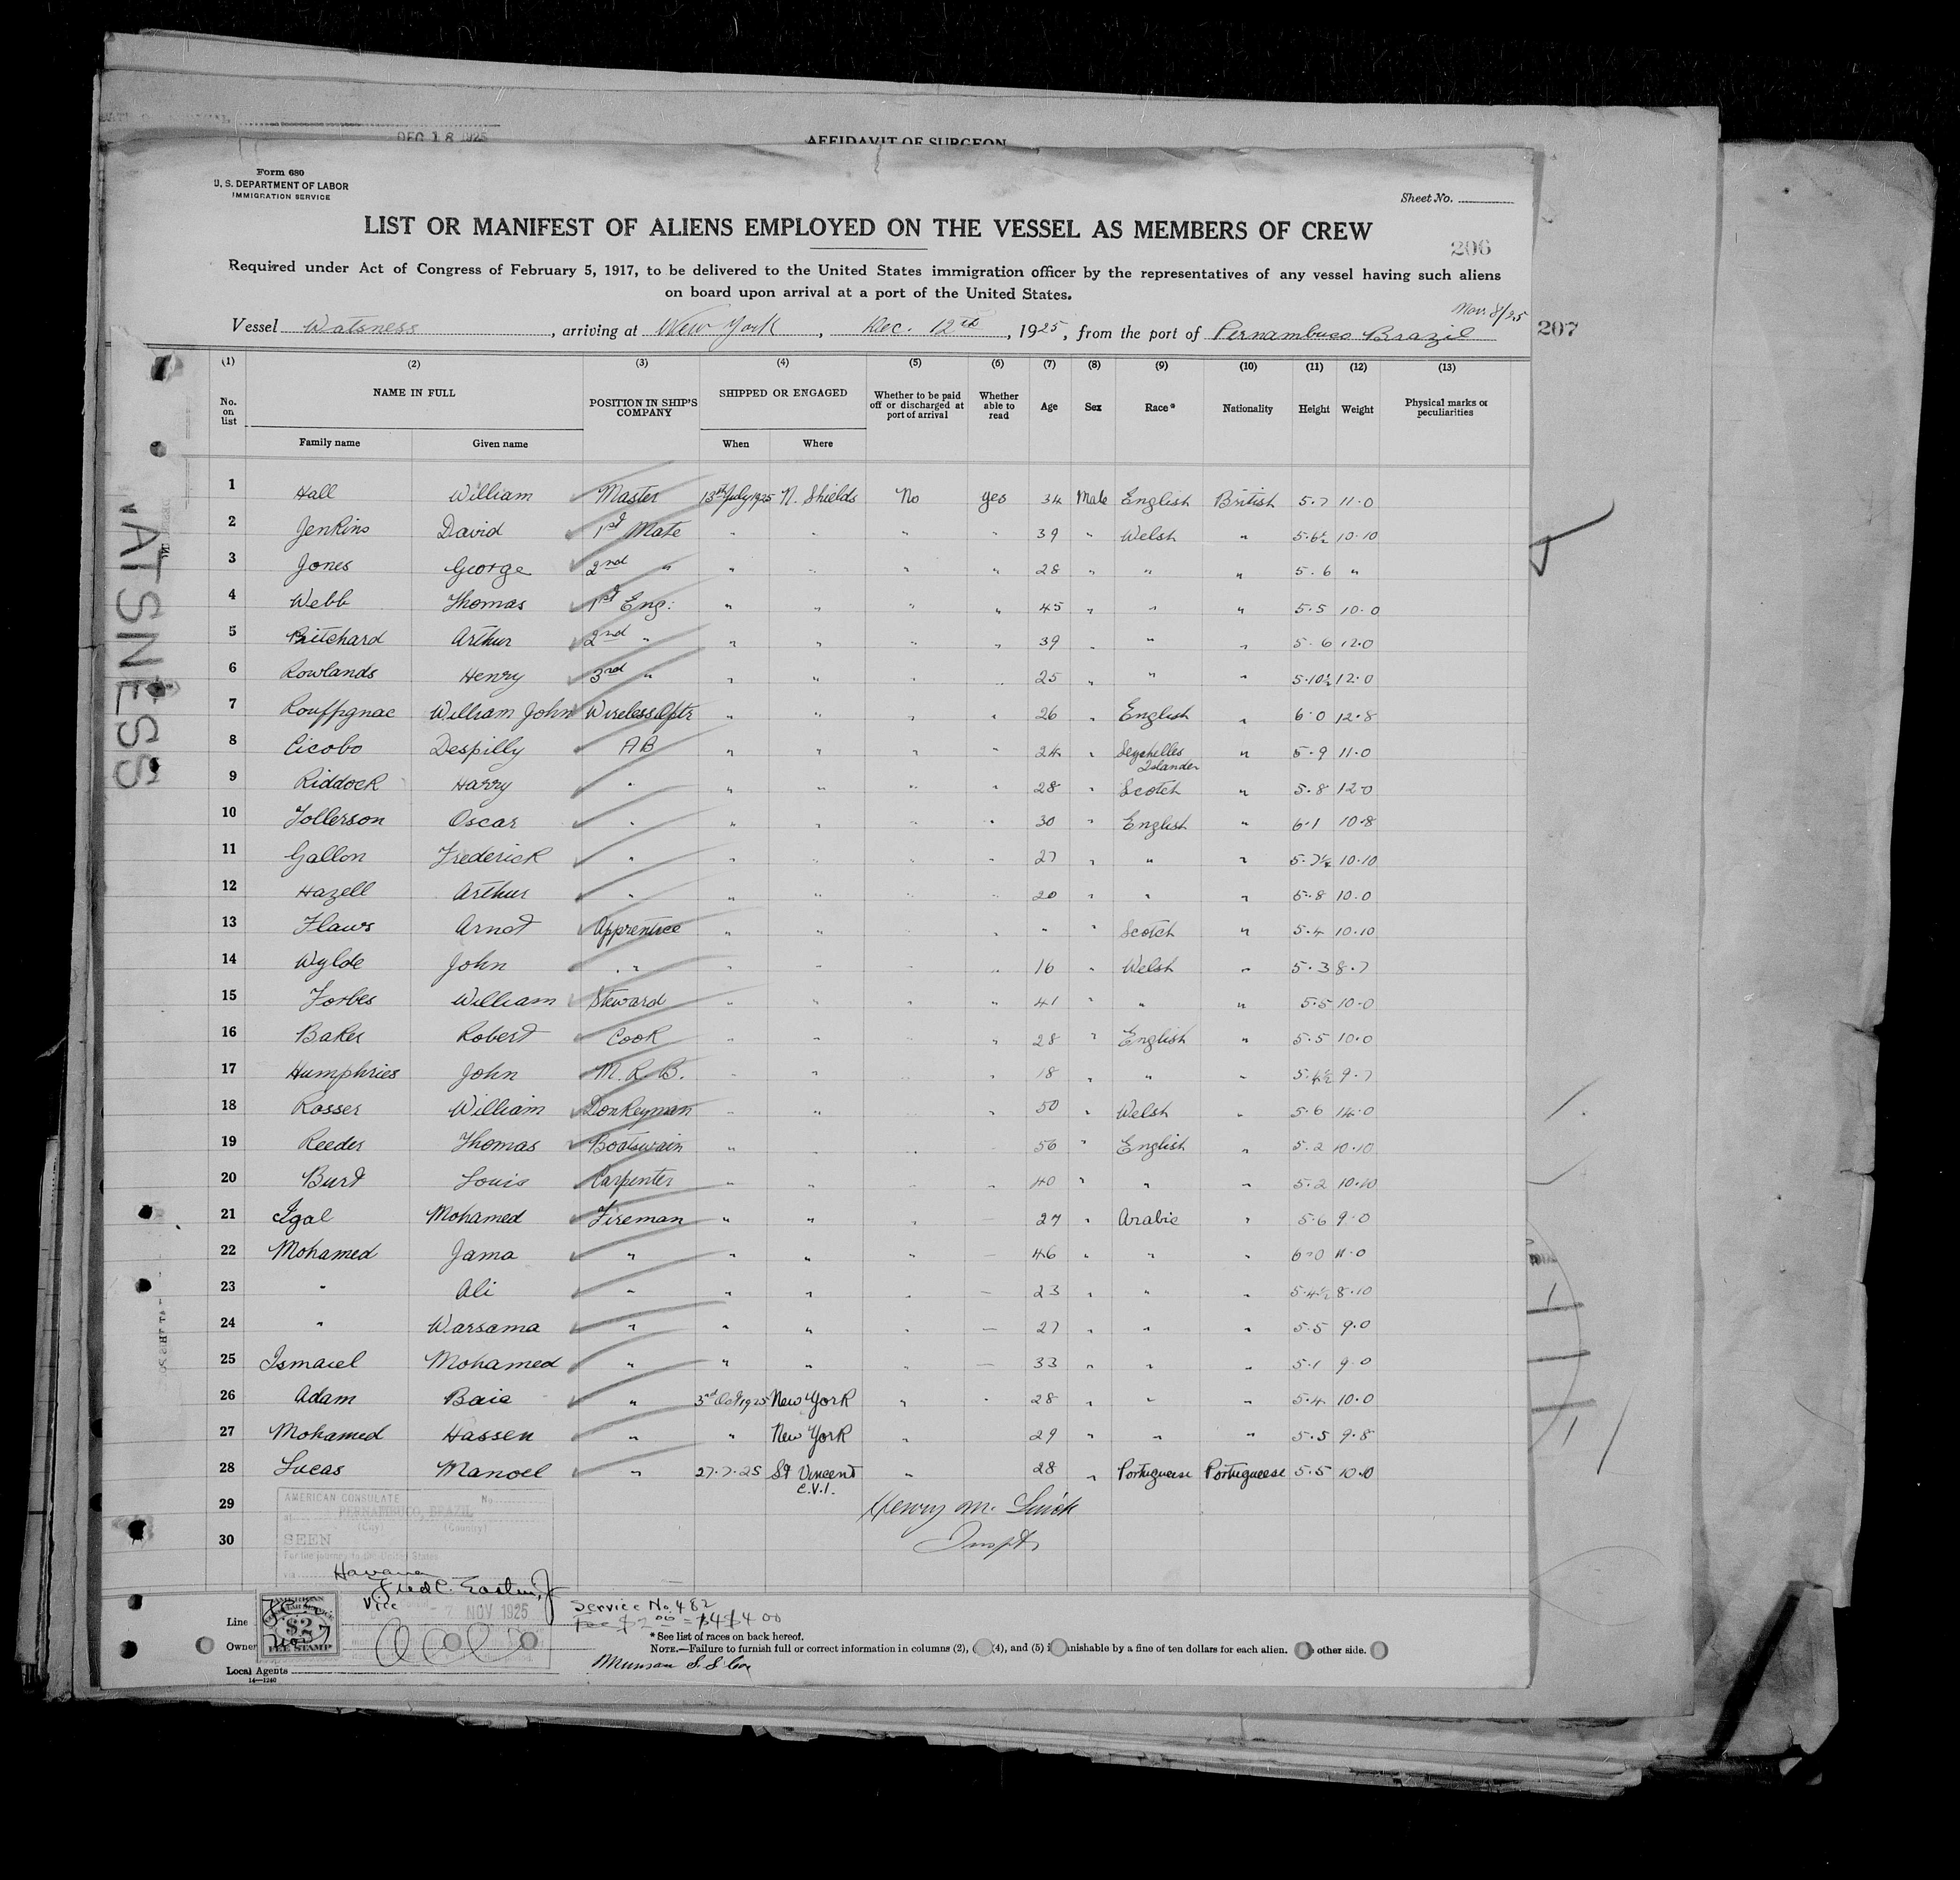 DEC 18 1925
AFFIDAVIT OF SURGEON
Form 680
U. S. DEPARTMENT OF LABOR
IMMIGRATION SERVICE
Sheet No.
LIST OR MANIFEST OF ALIENS EMPLOYED ON THE VESSEL AS MEMBERS OF CREW
206
Required under Act of Congress of February 5, 1917, to be delivered to the United States immigration officer by the representatives of any vessel having such aliens
on board upon arrival at a port of the United States.
Nov 8/25
Vessel Watsness, arriving at New York, Dec. 12th, 1925, from the port of Pernambuco Brazil
207
WATSNESS
(1) (2) (3) (4) (5) (6) (7) (8) (9) (10) (11) (12) (13)
No. on list NAME IN FULL Family name Given name POSITION IN SHIP'S COMPANY SHIPPED OR ENGAGED When Where Whether to be paid off or discharged at port of arrival Whether able to read Age Sex Race* Nationality Height Weight Physical marks or peculiarities
1 Hall William Master 13th July 1925 N. Shields No yes 34 Male English British 5.7 11.0
2 Jenkins David 1st Mate " " " " 39 " Welsh " 5.6½ 10.10
3 Jones George 2nd " " " " " 28 " " " 5.6 "
4 Webb Thomas 1st Eng: " " " " 45 " " " 5.5 10.0
5 Pritchard Arthur 2nd " " " " " 39 " " " 5.6 12.0
6 Rowlands Henry 3rd " " " " " 25 " " " 5.10½ 12.0
7 Rouffignac William John Wireless Optr " " " " 26 " English " 6.0 12.8
8 Cicobo Despilly AB " " " " 24 " Seychelles Islander " 5.9 11.0
9 Riddock Harry " " " " " 28 " Scotch " 5.8 12.0
10 Tollerson Oscar " " " " " 30 " English " 6.1 10.8
11 Gallon Frederick " " " " " 27 " " " 5.7½ 10.10
12 Hazell Arthur " " " " " 20 " " " 5.8 10.0
13 Flaws Arnot Apprentice " " " " " " Scotch " 5.4 10.10
14 Wylde John " " " " " 16 " Welsh " 5.3 8.7
15 Forbes William Steward " " " " 41 " " " 5.5 10.0
16 Baker Robert Cook " " " " 28 " English " 5.5 10.0
17 Humphries John M.R.B. " " " " 18 " " " 5.4½ 9.7
18 Rosser William Donkeyman " " " " 50 " Welsh " 5.6 14.0
19 Reeder Thomas Boatswain " " " " 56 " English " 5.2 10.10
20 Burt Louis Carpenter " " " " 40 " " " 5.2 10.10
21 Igal Mohamed Fireman " " " 27 " Arabic " 5.6 9.0
22 Mohamed Jama " " " " — 46 " " " 6.0 11.0
23 " Ali " " " " — 23 " " " 5.4½ 8.10
24 " Warsama " " " " — 27 " " " 5.5 9.0
25 Ismaiel Mohamed " " " " — 33 " " " 5.1 9.0
26 Adam Baie " 3rd Oct 1925 New York " - 28 " " " 5.4 10.0
27 Mohamed Hassen " " New York " 29 " " " 5.5 9.8
28 Lucas Manoel " 27.7.25 St Vincent C.V.I. " 28 " Portuguese Portugueese 5.5 10.10
29
30
Henry M.
Inspt.
AMERICAN CONSULATE No
at PERNAMBUCO, BRAZIL
(City) (Country)
SEEN
For the journey to the United States
via Havana
Fred C. Eastin, Jr
Vice
7 NOV 1925
AMERICAN
$2
FEE STAMP
Nov 7
Service No. 482
Line
Owner
Local Agents
14—1240
* See list of races on back hereof.
NOTE.—Failure to furnish full or correct information in columns (2), (4), and (5) nishable by a fine of ten dollars for each alien. other side.
Munson S. S. Co